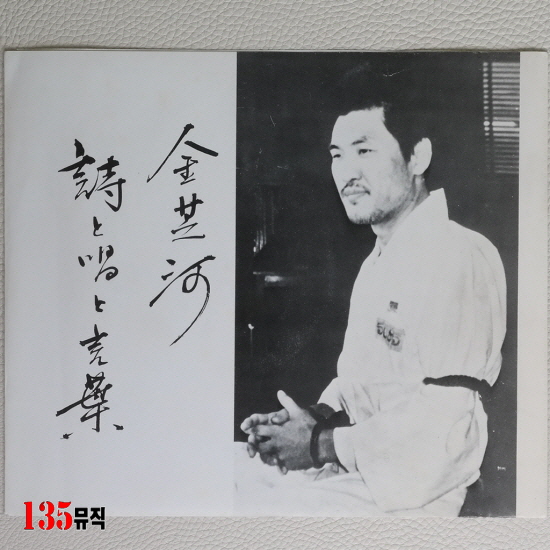 金芝河
詩と唱と言葉
135뮤직